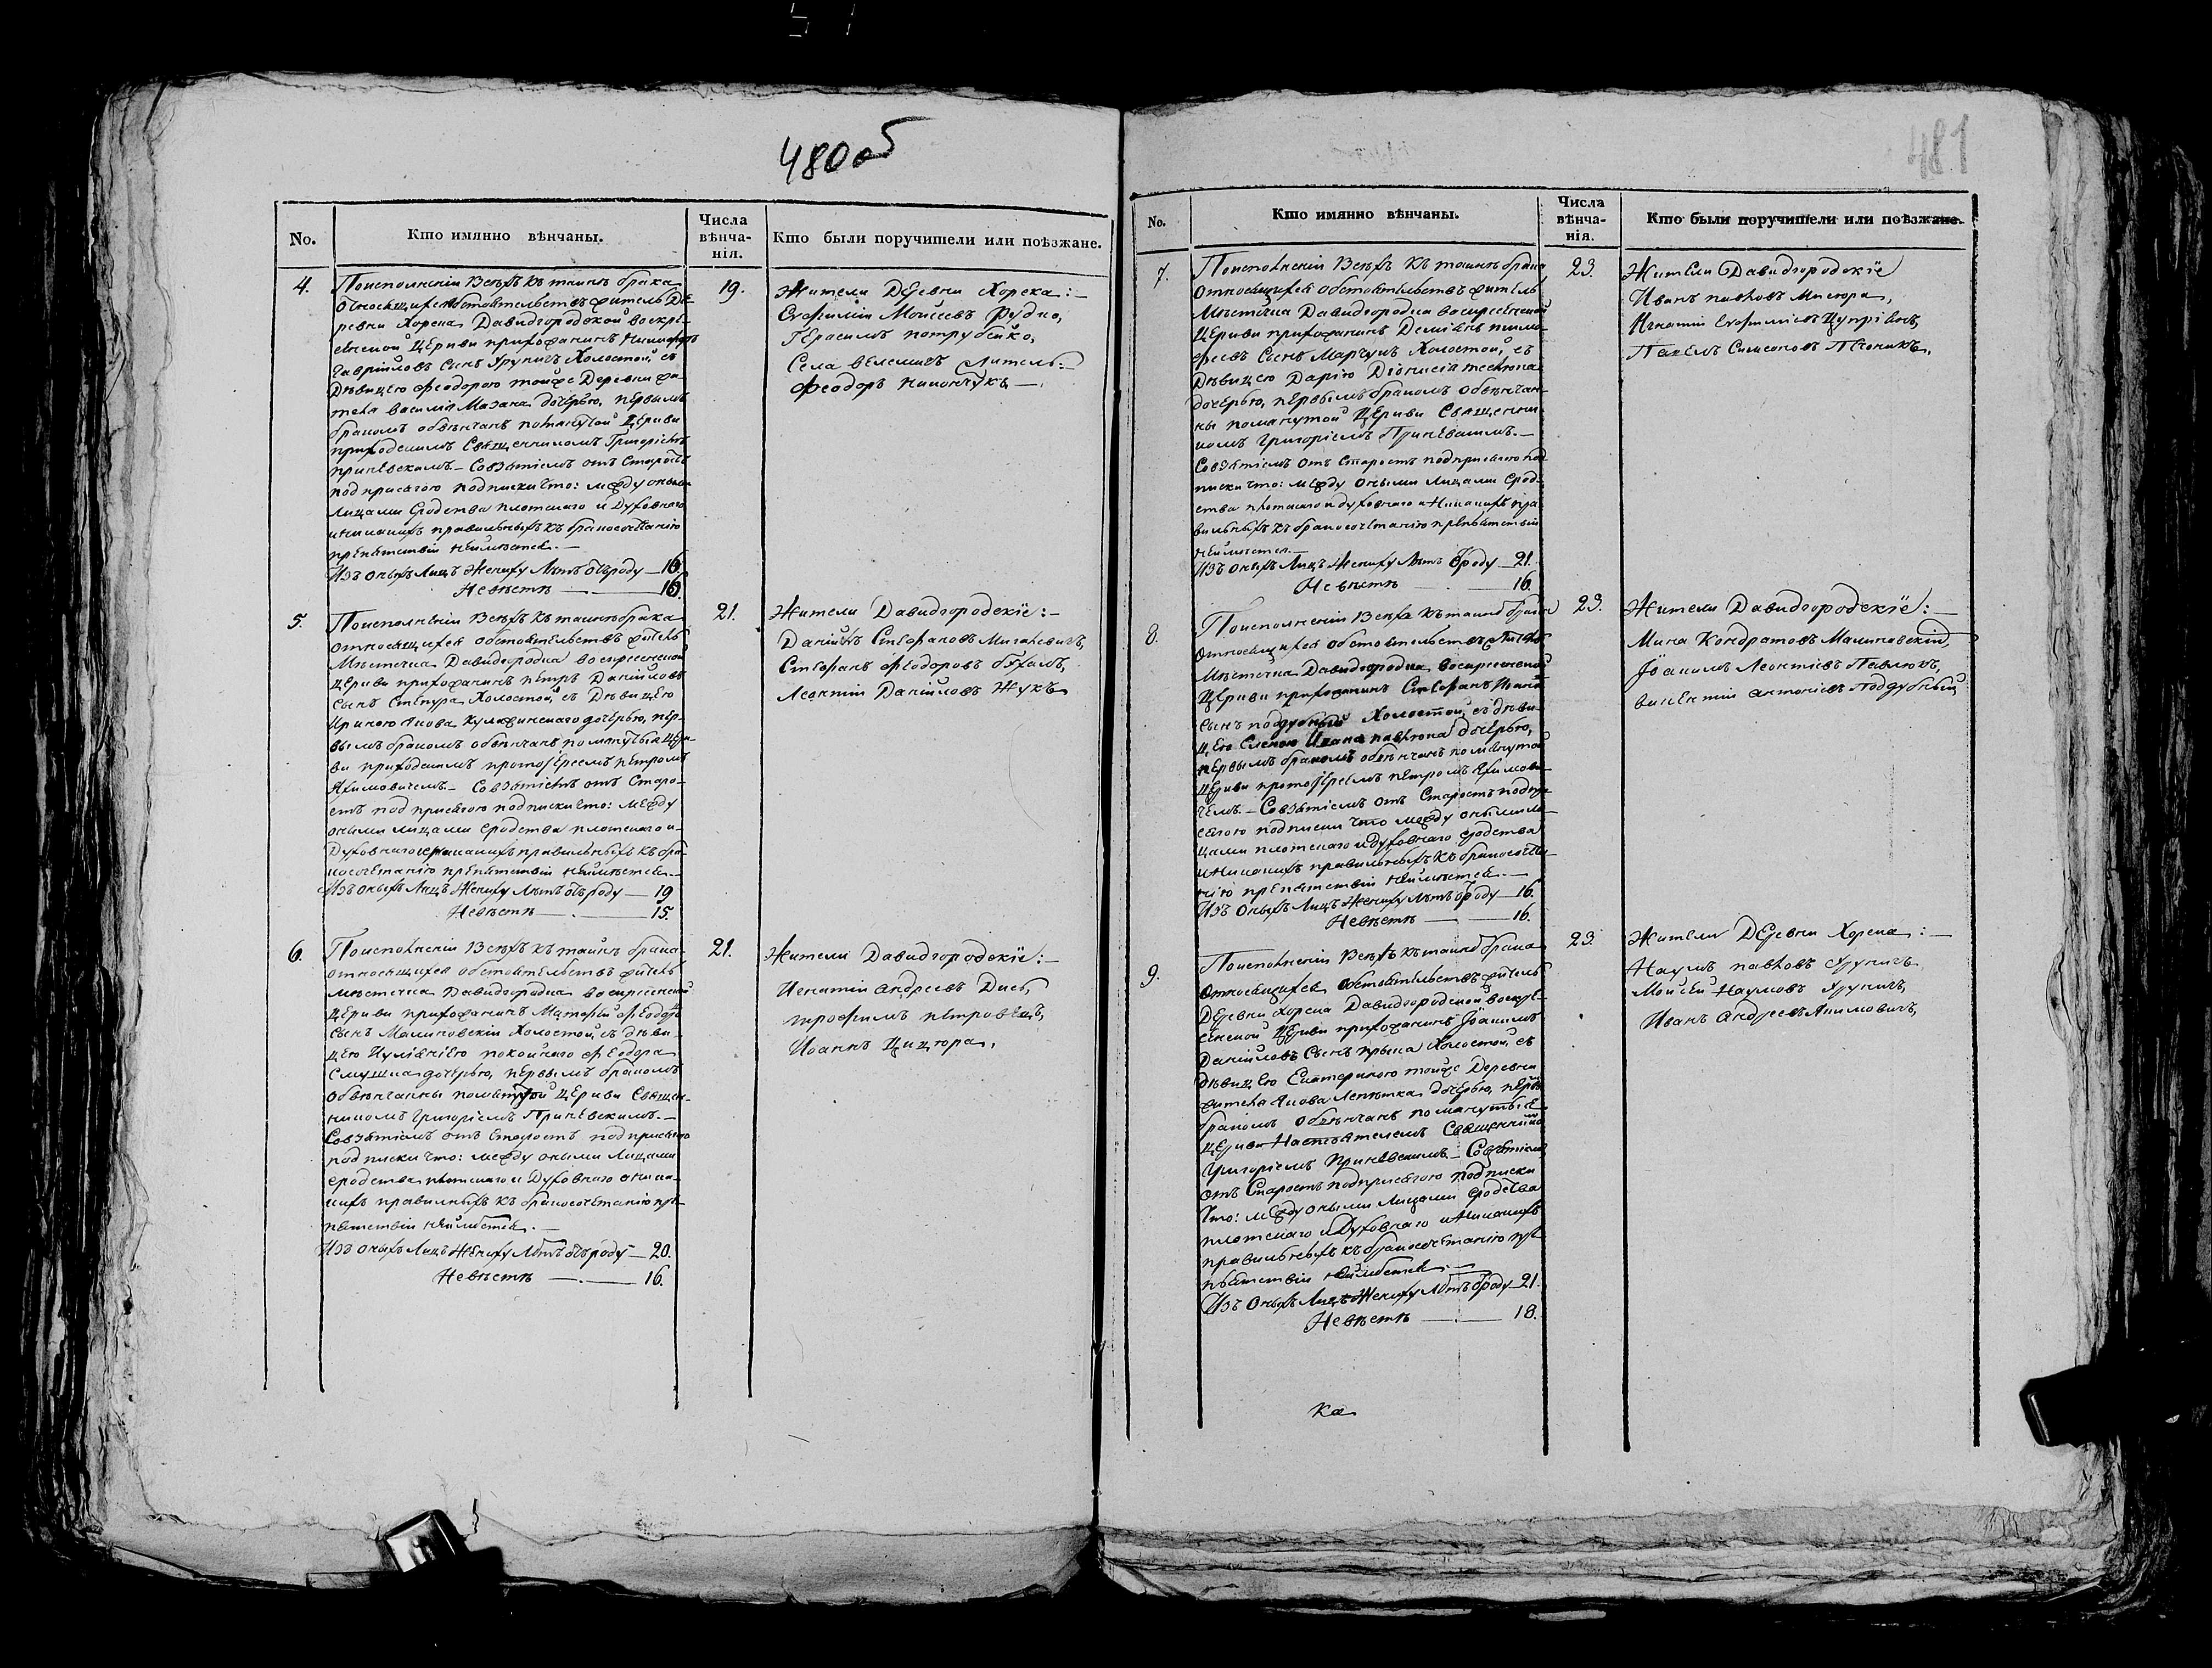 480 об
No.
Кто имянно вѣнчаны.
Числа
вѣнча-
нія.
Кто были поручители или поѣзжане.
4.
Поисполненіи Всѣхъ къ таинѣ брака
относящихся обстоятельствъ житель Де-
ревни Хорска Давидгородской воскре-
сенской Церкви прихожанинъ
Гавриловъ Сынъ Холостой, съ
Дѣвицею Феодорою тойже Деревни жи-
теля василія Мазана дочерью, первымъ
бракомъ обвѣнчанъ помянутой Церкви
приходскимъ Священникомъ Григоріемъ
Приневскимъ. — Совзятіемъ отъ Старостъ
под присягою подписки что: между оными
Лицами Сродства плотскаго и Духовнаго
иникакихъ правильныхъ къ бракосочетанію
препятствій неимѣется. —
Изъ оныхъ Лицъ Жениху Лѣтъ отъ роду —
Невѣстѣ —
19.
Жители Деревни Хорска: —
Евфимій Моисеевъ Рудко,
Герасимъ потрубейко,
Села велемичъ житель: —
Феодоръ —
5.
Поисполненіи Всѣхъ къ таинѣ брака
относящихся обстоятельствъ житель
Мѣстечка Давидгородка воскресенской
Церкви прихожанинъ петръ Даніиловъ
сынъ Степура Холостой, съ Дѣвицею
Ириною Якова дочерью, пер-
вымъ бракомъ обвѣнчанъ помянутыя Церк-
ви приходскимъ протоіереемъ петромъ
Якимовичемъ. — Совзятіемъ отъ Старо-
стъ под присягою подписки что: между
оными лицами сродства плотскаго и
Духовнаго иникакихъ правильныхъ къ бра-
косочетанію препятствій неимѣется. —
Изъ оныхъ Лицъ Жениху Лѣтъ отъ роду — 19
Невѣстѣ — 15.
21.
Жители Давидгородскіе: —
Даніилъ Стефановъ
Стефанъ Феодоровъ
Леонтій Даніиловъ Жукъ
6.
Поисполненіи Всѣхъ къ таинѣ брака
относящихся обстоятельствъ житель
мѣстечка Давидгородка воскресенской
Церкви прихожанинъ Матѳей Феодоръ
Сынъ Малиновскій Холостой, съ дѣви-
цею Іуліаніею покойнаго Феодора
дочерью, первымъ бракомъ
обвѣнчаны помянутой Церкви Священ-
никомъ Григоріемъ Приневскимъ. —
Совзятіемъ отъ Старостъ под присягою
подписки что: между оными Лицами
сродства плотскаго и Духовнаго иника-
кихъ правилныхъ къ бракосочетанію пре-
пятствій неимѣется. —
Изъ оныхъ Лицъ Жениху Лѣтъ отъ роду — 20.
Невѣстѣ — 16.
21.
Жители Давидгородскіе: —
Игнатій Андреевъ
трофимъ петровецъ,
Иоаннъ Цицюра,
481
No.
Кто имянно вѣнчаны.
Числа
вѣнча-
нія.
Кто были поручители или поѣзжане.
7.
Поисполненіи Всѣхъ къ таинѣ брака
относящихся обстоятельствъ житель
Мѣстечка Давидгородка воскресенской
Церкви прихожанинъ Деміянъ тимо-
феевъ Сынъ Марчукъ Холостой, съ
Дѣвицею Даріею Діонисія
дочерью, первымъ бракомъ обвѣнчан-
ны помянутой Церкви Священни-
комъ Григоріемъ Приневскимъ. —
Совзятіемъ отъ Старостъ подприсягою под-
писки что: между оными лицами Срод-
ства плотскаго идуховнаго иникакихъ пра-
вильныхъ къ бракосочетанію препятствій
неимѣется. —
Изъ оныхъ Лицъ Жениху Лѣтъ отъ роду — 21.
Невѣстѣ — 16.
23.
Жители Давидгородскіе
Иванъ павловъ Мисюра,
Игнатій Евфиміевъ
Павелъ Симеоновъ
8.
Поисполненіи Всѣхъ къ таинѣ брака
относящихся обстоятельствъ житель
Мѣстечка Давидгородка воскресенской
Церкви прихожанинъ Стефанъ
Сынъ поддубный Холостой, съ дѣви-
цею Еленою Ивана дочерью,
первымъ бракомъ обвѣнчанъ помянутой
Церкви протоіереемъ петромъ Якимови-
чемъ. — Совзятіемъ отъ Старостъ подпри-
сягою подписки что между оными ли-
цами плотскаго идуховнаго сродства
иникакихъ правильныхъ къ бракосочета-
нію препятствій неимѣется. —
Изъ оныхъ Лицъ Жениху Лѣтъ отъ роду — 16.
Невѣстѣ — 16.
23.
Жители Давидгородскіе: —
Мина Кондратовъ Малиновскій,
Іоакимъ Леонтіевъ Павлювъ,
викентій антоніевъ Поддубный
9.
Поисполненіи Всѣхъ къ таинѣ брака
относящихся обстоятельствъ житель
Деревни Хорска Давидгородской воскре-
сенской Церкви прихожанинъ Іоакимъ
Даніиловъ Сынъ Холостой, съ
дѣвицею Екатериною тойже Деревни
жителя Якова дочерью, первы
бракомъ обвѣнчанъ помянутыя
Церкви Настоятелемъ Священнико
Григоріемъ Приневскимъ. — Совзятіемъ
отъ Старостъ подприсягою подписки
что: между оными Лицами сродства
плотскаго идуховнаго иникакихъ
правильныхъ къ бракосочетанію пре-
пятствій неимѣется. —
Изъ оныхъ Лицъ Жениху Лѣтъ отъ роду — 21.
Невѣстѣ — 18.
23.
Жители Деревни Хорска: —
Наумъ павловъ
Моисей Наумовъ
Иванъ Андреевъ Якимовичъ,